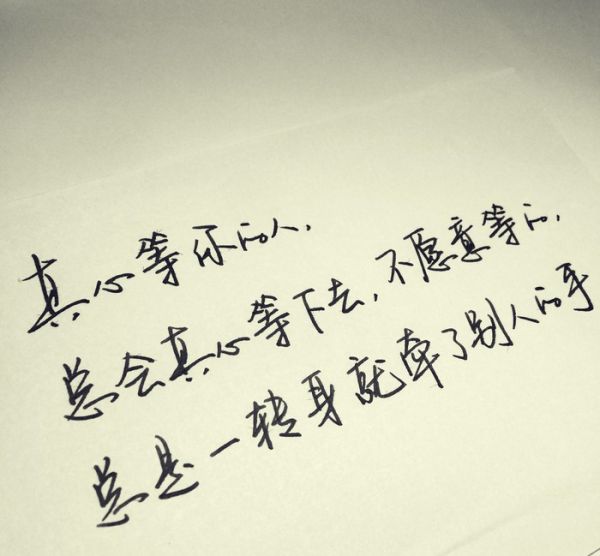 真心等你的人，
总会真心等下去，不愿意等的，
总是一转身就牵了别人的手